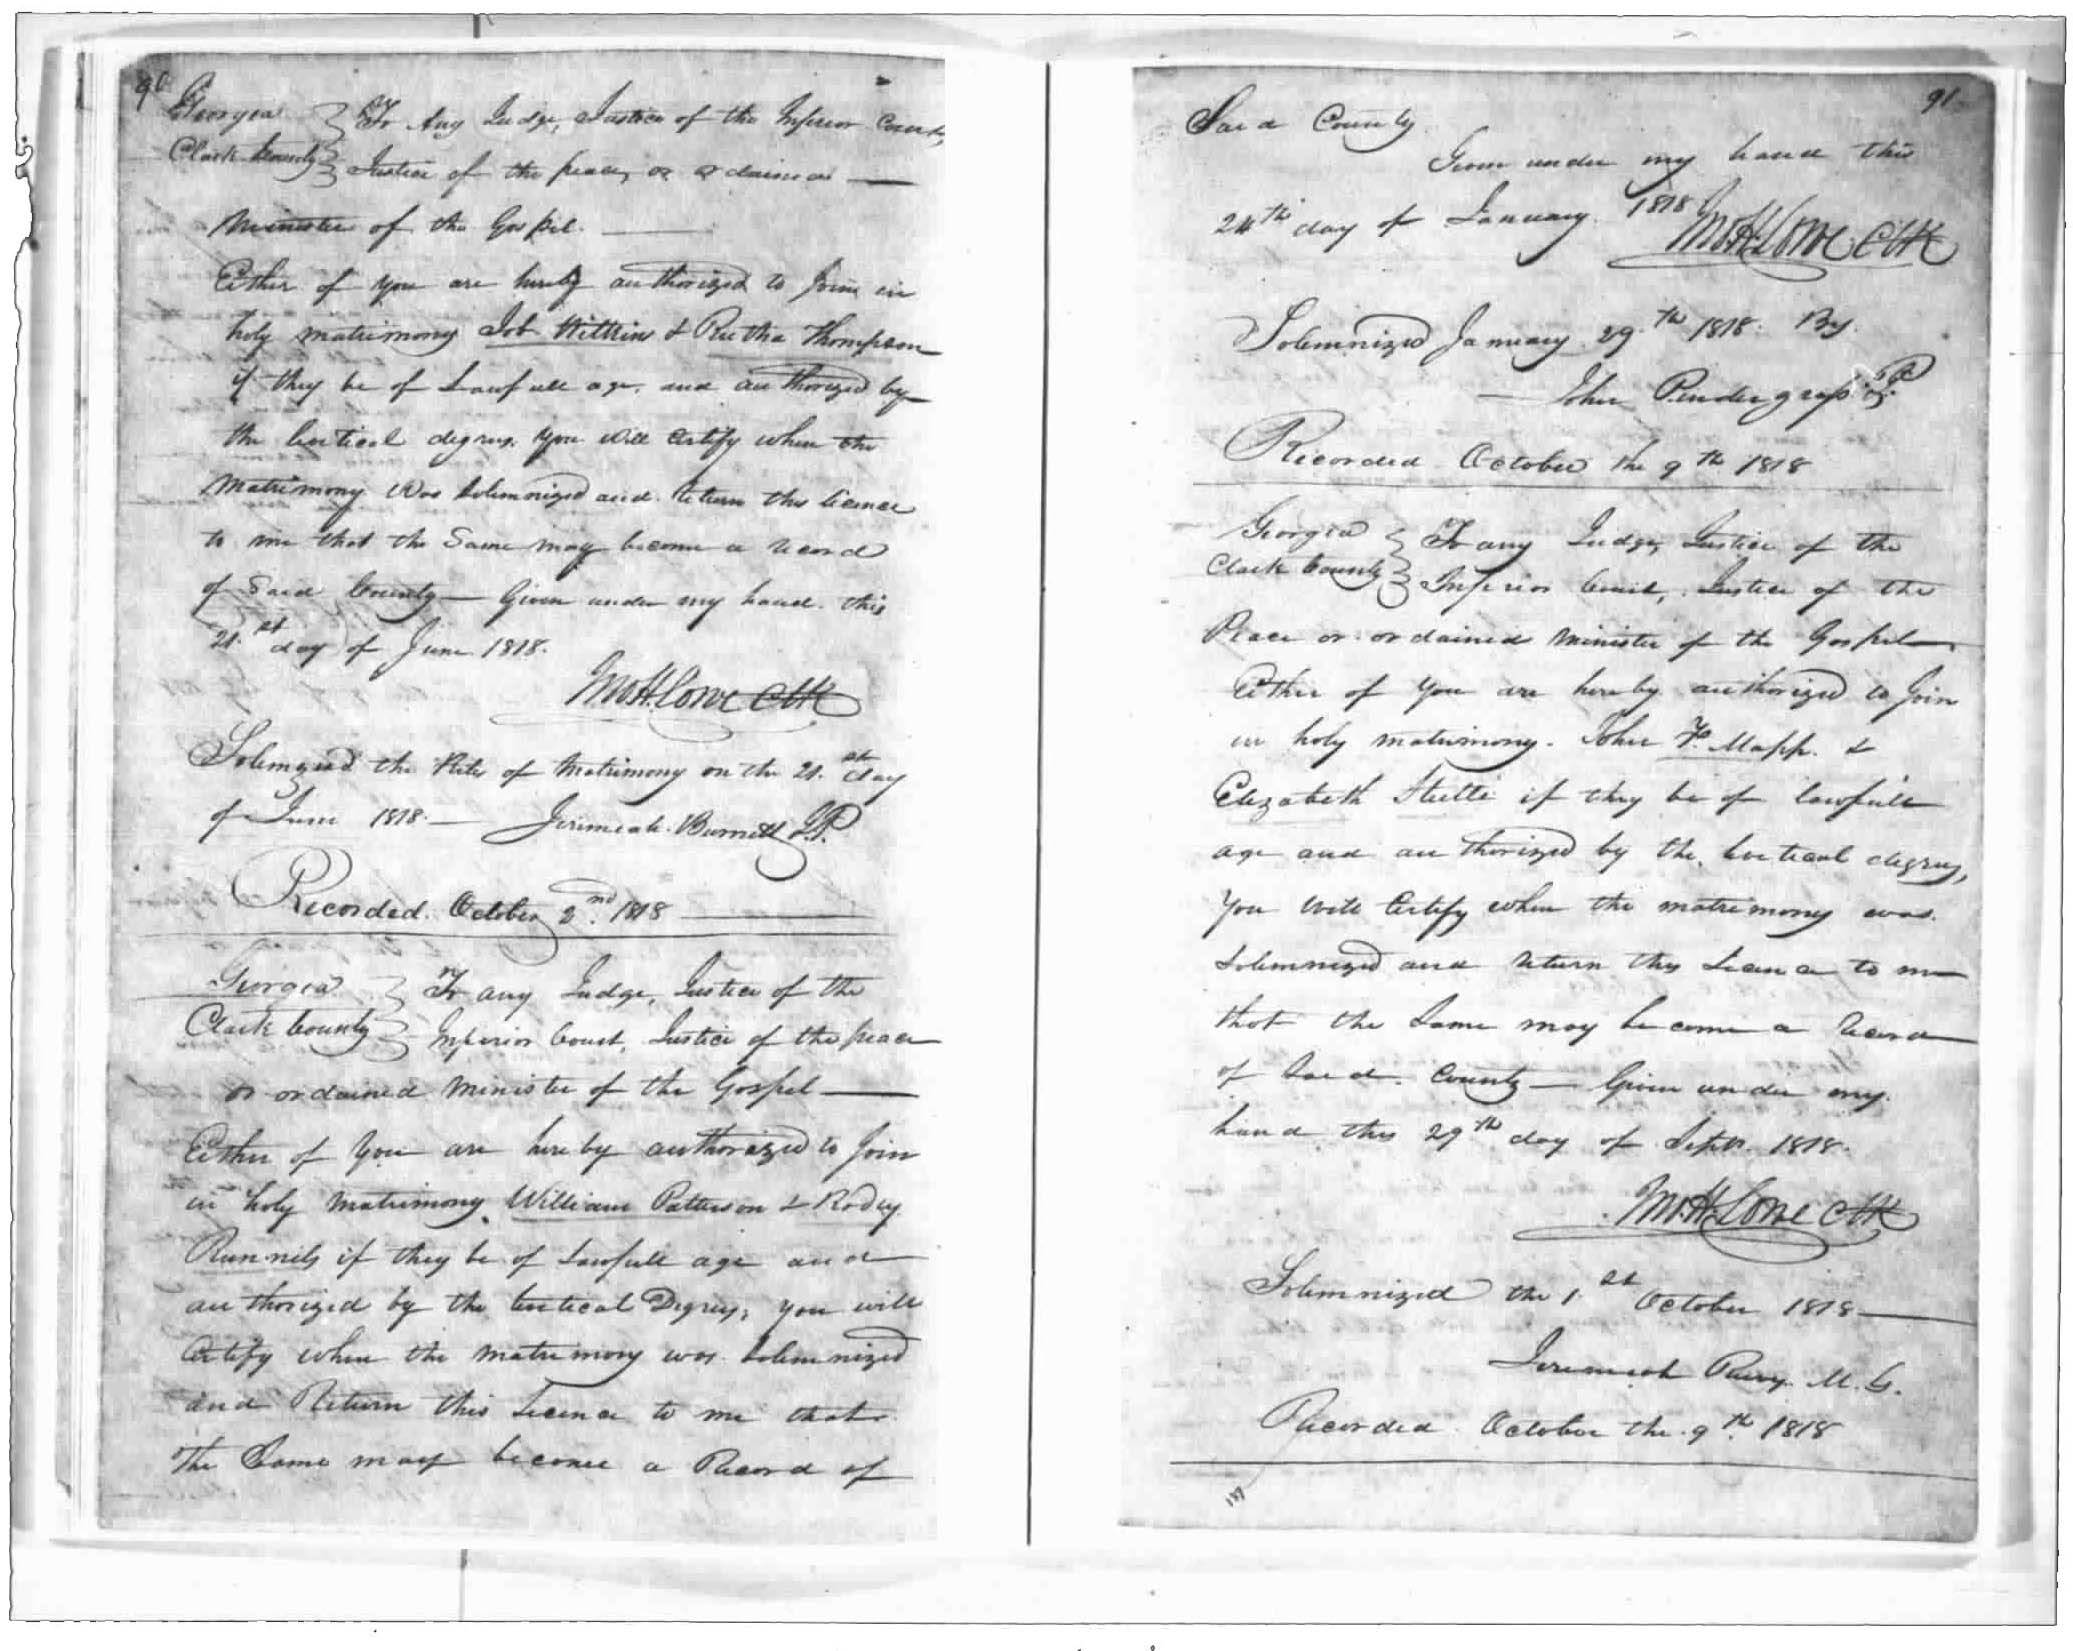 90
Georgia To Any Judge, Justice of the Inferior Court,
Clark County Justice of the peace, or ordained
Minister of the Gospel.
Either of you are hereby authorized to Join in
holy matrimony Job Wilkins & Rutha Thompson
if they be of Lawfull age, and authorized by
the levitical degrees. you will Certify when the
Matrimony Was Solemnized and return this licence
to me that the Same may become a record
of Said County — Given under my hand this
21.st day of June 1818.
Mo H. Lowe Clk
Solemnized the Rites of Matrimony on the 21.st day
of June 1818 — Jeremiah Burnett J.P.
Recorded October 2nd. 1818
Georgia To any Judge, Justice of the
Clark County Inferior Court, Justice of the peace
or ordained Minister of the Gospel —
Either of You are hereby authorized to Join
in holy Matrimony William Patterson & Rodey
Runnels if they be of Lawfull age and
authorized by the levitical Degrees, you will
Certify when the matrimony was Solemnized
and Return this Licence to me that
The Same may become a Record of
91
Said County
Given under my hand this
24th day of January 1818
Mo H. Lowe Clk
Solemnized January 29.th 1818. By
John Pendergrass J.P.
Recorded October the 9th 1818
Georgia To any Judge, Justice of the
Clark County Inferior Court, Justice of the
Peace or ordained Minister of the Gospel
Either of You are hereby authorized to Join
in holy matrimony. John F. Mapp &
Elizabeth if they be of lawfull
age and authorized by the levitical degrees,
You will Certify when the matrimony was
Solemnized and return this Licence to me
that the Same may become a Record
of Said County — Given under my
hand this 29th day of Septr. 1818.
Mo. H. Lowe Clk
Solemnized the 1st October 1818 —
Jeremiah M. G.
Recorded October the 9th 1818